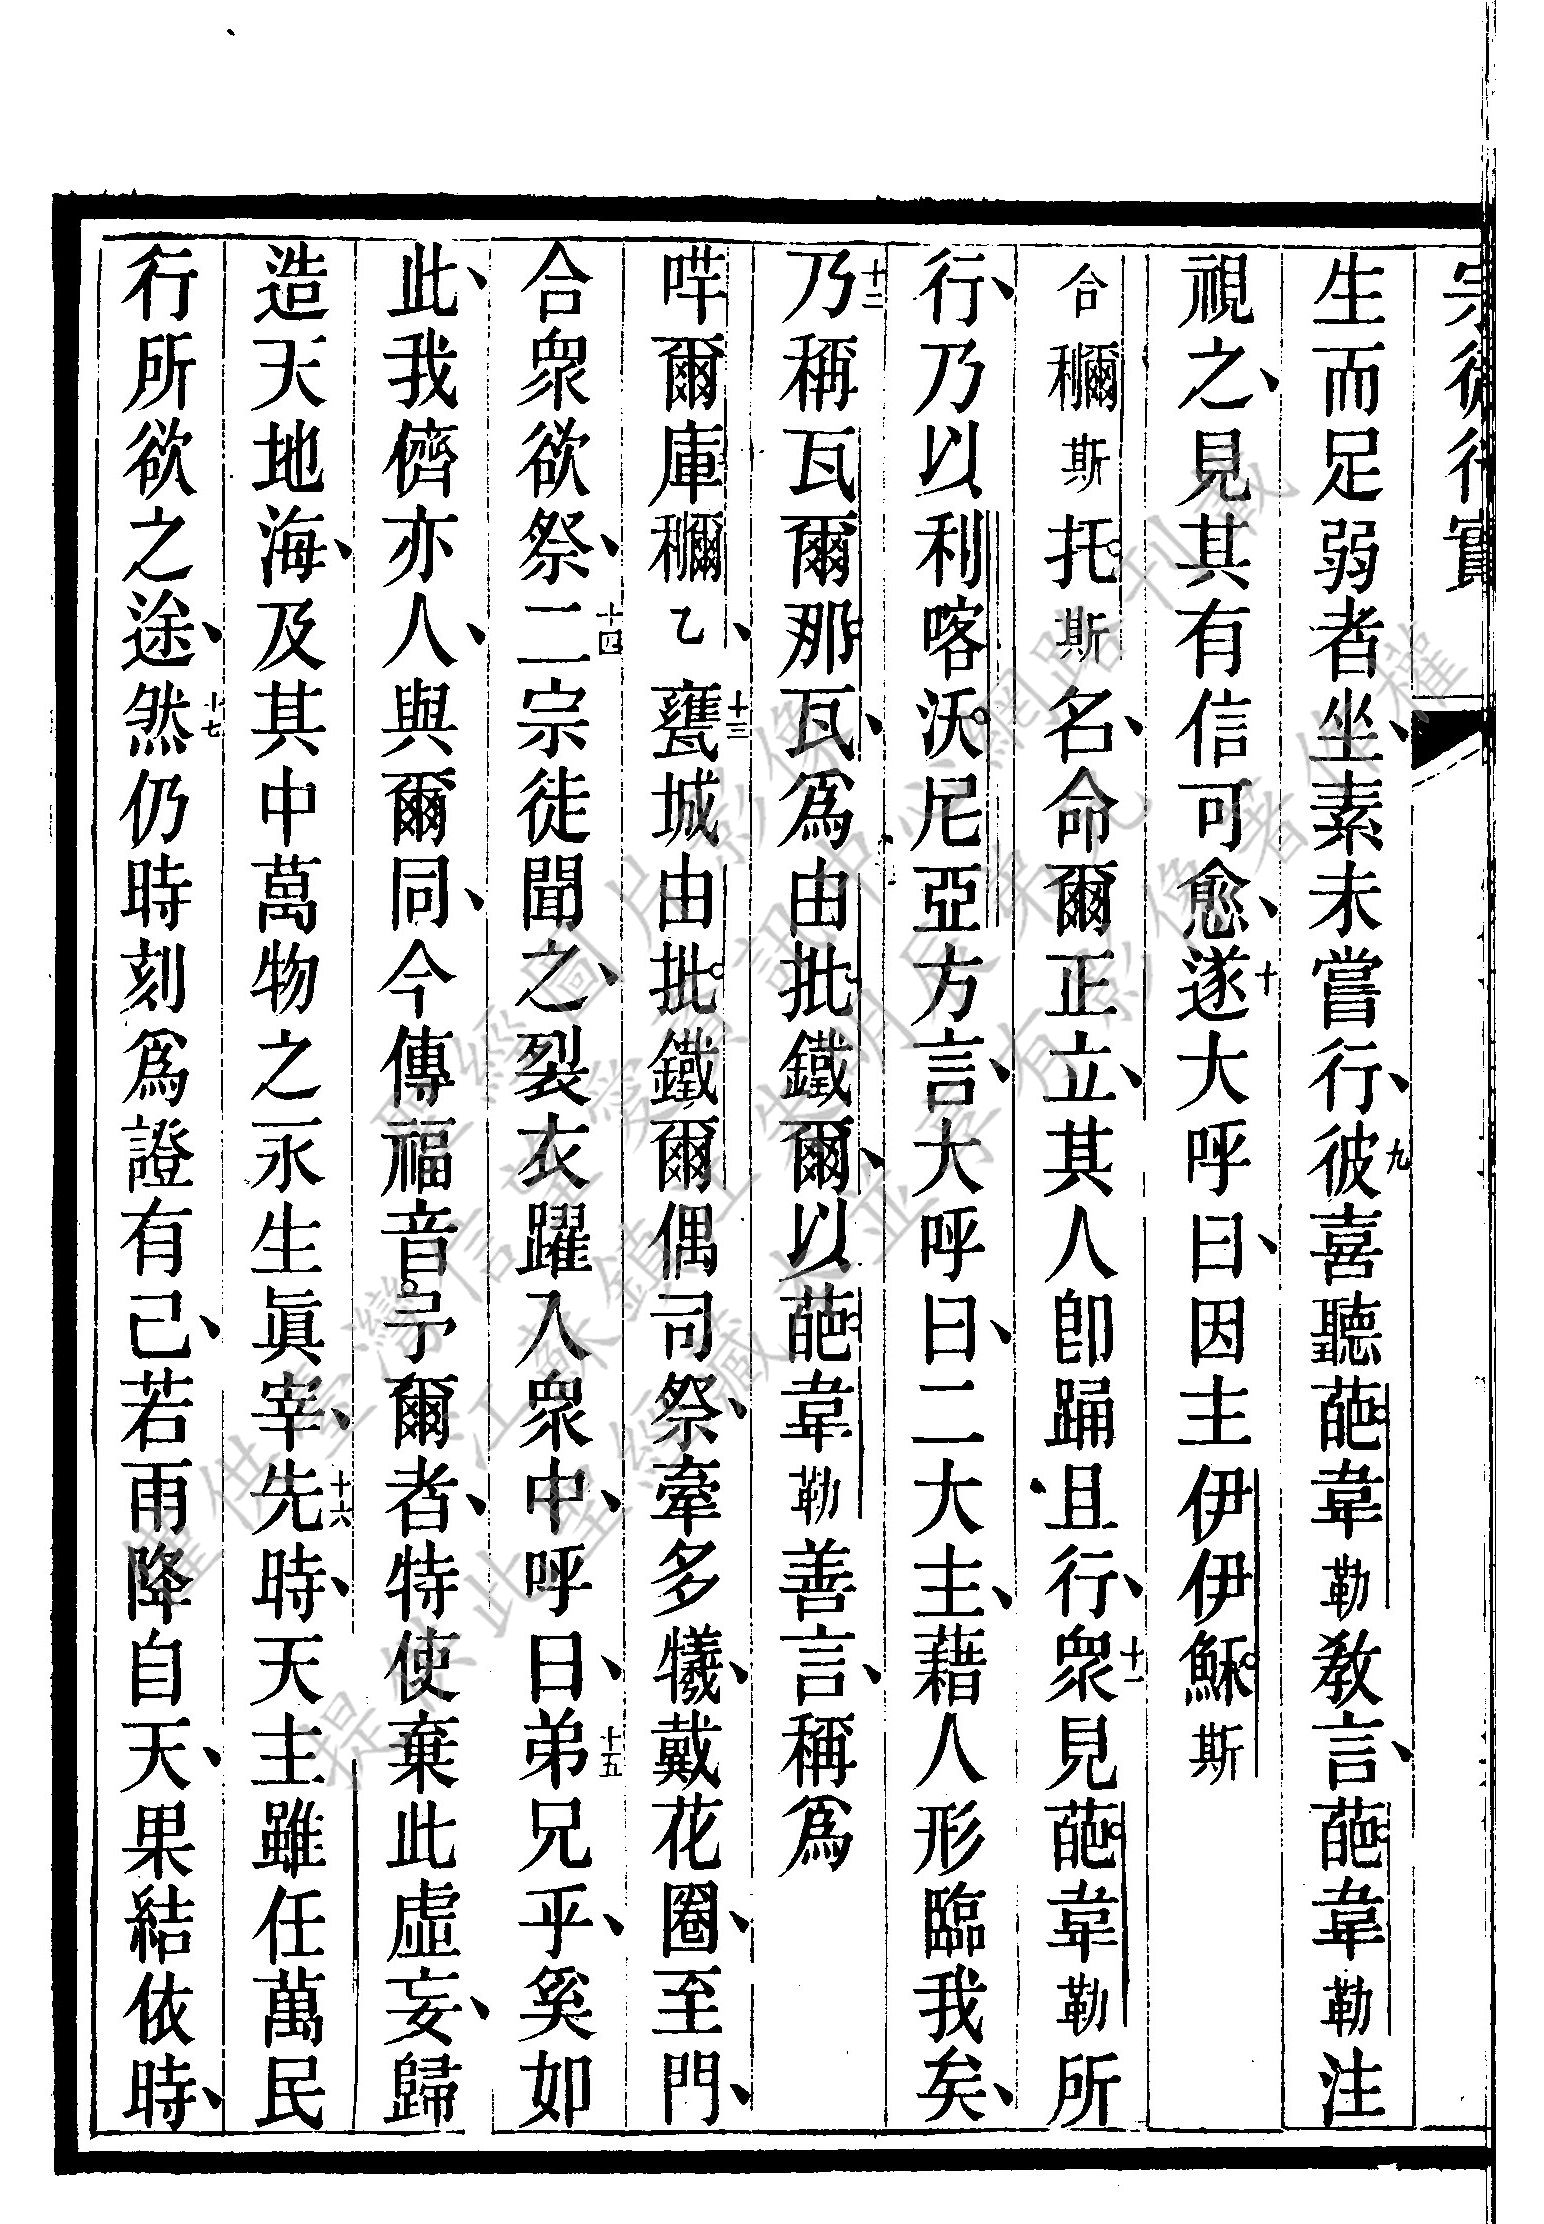 宗徒行實
生而足弱者坐、素未嘗行、九彼喜聽葩韋勒教言、葩韋勒注
視之、見其有信可愈、十遂大呼曰、因主伊伊穌斯
合穪斯托斯名、命爾正立、其人卽踊且行、十一衆見葩韋勒所
行、乃以利喀沃尼亞方言、大呼曰、二大主、藉人形臨我矣、
十二乃稱瓦爾那瓦、爲由批鐵爾、以葩韋勒善言、稱爲
哶爾庫穪乙、十三甕城由批鐵爾偶司祭、牽多犧、戴花圈、至門、
合衆欲祭、十四二宗徒聞之、裂衣躍入衆中、呼曰、十五弟兄乎、奚如
此、我儕亦人、與爾同、今傳福音予爾者、特使棄此虛妄、歸
造天地海、及其中萬物之永生眞宰、十六先時、天主雖任萬民
行所欲之途、十七然仍時刻爲證有己、若雨降自天、果結依時、